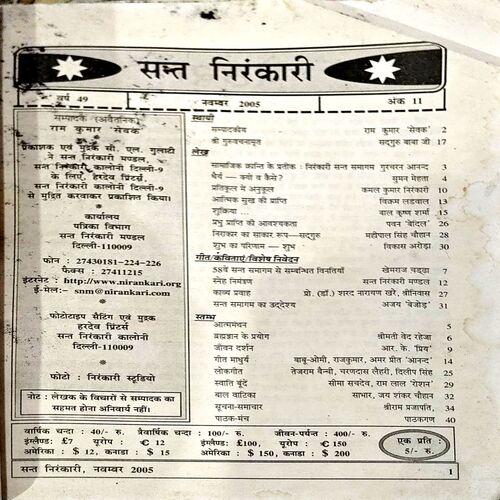 सन्त निरंकारी
वर्ष 49 नवम्बर 2005 अंक 11
सम्पादक (अवैतनिक)
राम कुमार 'सेवक'
प्रकाशक एवं मुद्रक सी. एल. गुलाटी
ने सन्त निरंकारी मण्डल,
सन्त निरंकारी कालोनी दिल्ली-9
के लिए, हरदेव प्रिंटर्स,
सन्त निरंकारी कालोनी दिल्ली-9
से मुद्रित करवाकर प्रकाशित किया।
*
कार्यालय
पत्रिका विभाग
सन्त निरंकारी मण्डल
दिल्ली-110009
फोन : 27430181-224-226
फैक्स : 27411215
इंटरनेट : http://www.nirankari.org
ई-मेल:- snm@nirankari.com
*
फोटोटाइप सैटिंग एवं मुद्रक
हरदेव प्रिंटर्स
सन्त निरंकारी कालोनी
दिल्ली-110009
*
फोटो : निरंकारी स्टूडियो
नोट : लेखक के विचारों से सम्पादक का
सहमत होना अनिवार्य नहीं।
स्थायी
सम्पादकीय राम कुमार 'सेवक' 2
श्री गुरुवचनामृत सद्गुरु बाबा जी 17
लेख
सामाजिक क्रान्ति के प्रतीक : निरंकारी सन्त समागम गुरचरन आनन्द 3
धैर्य – क्यों व कैसे? सुमन मेहता 4
प्रतिकूल में अनुकूल कमल कुमार निरंकारी 10
आत्मिक सुख की प्राप्ति विक्रम लडवाल 13
शुक्रिया ... बाल कृष्ण शर्मा 15
प्रभु प्राप्ति की आवश्यकता पवन 'बेदिल' 26
निराकार का साकार रूप—सद्गुरु महीपाल सिंह चौहान 28
शुभ का परिणाम – शुभ विकास अरोड़ा 30
गीत/कविताएं/विशेष निवेदन
58वें सन्त समागम से सम्बन्धित विनतियाँ खेमराज चड्ढा 7
स्नेह निमंत्रण सन्त निरंकारी मण्डल 12
काव्य प्रवाह प्रो. (डॉ.) शरद नारायण खरे, श्रीनिवास 27
सन्त समागम का उद्देश्य अजय 'बेजोड़' 31
स्तम्भ
आत्ममंथन 5
ब्रह्मज्ञान के प्रयोग श्रीमती वेद रहेजा 6
जीवन दर्शन आर. के. 'प्रिय' 9
गीत माधुर्य बाबू-ओमी, राजकुमार, अमर प्रीत 'आनन्द' 14
लोकगीत तेजराम बैन्सी, चरणदास लैहरी, दिलीप सिंह 25
स्वाति बूँदें सीमा सचदेव, राम लाल 'रोशन' 29
बाल वाटिका साभार, जय शंकर चौहान 32
सूचना-समाचार श्रीराम प्रजापति, 34
पाठक-मंच पाठकगण 40
वार्षिक चन्दा : 40/- रु. त्रैवार्षिक चन्दा : 100/- रु. जीवन-पर्यन्त : 400/- रु.
इंग्लैण्ड: £7 यूरोप : € 12 इंग्लैण्ड: £100, यूरोप : € 150
अमेरिका : $ 12, कनाडा : $ 15 अमेरिका : $ 150, कनाडा : $ 200
एक प्रति :
5/- रु.
सन्त निरंकारी, नवम्बर 2005 1